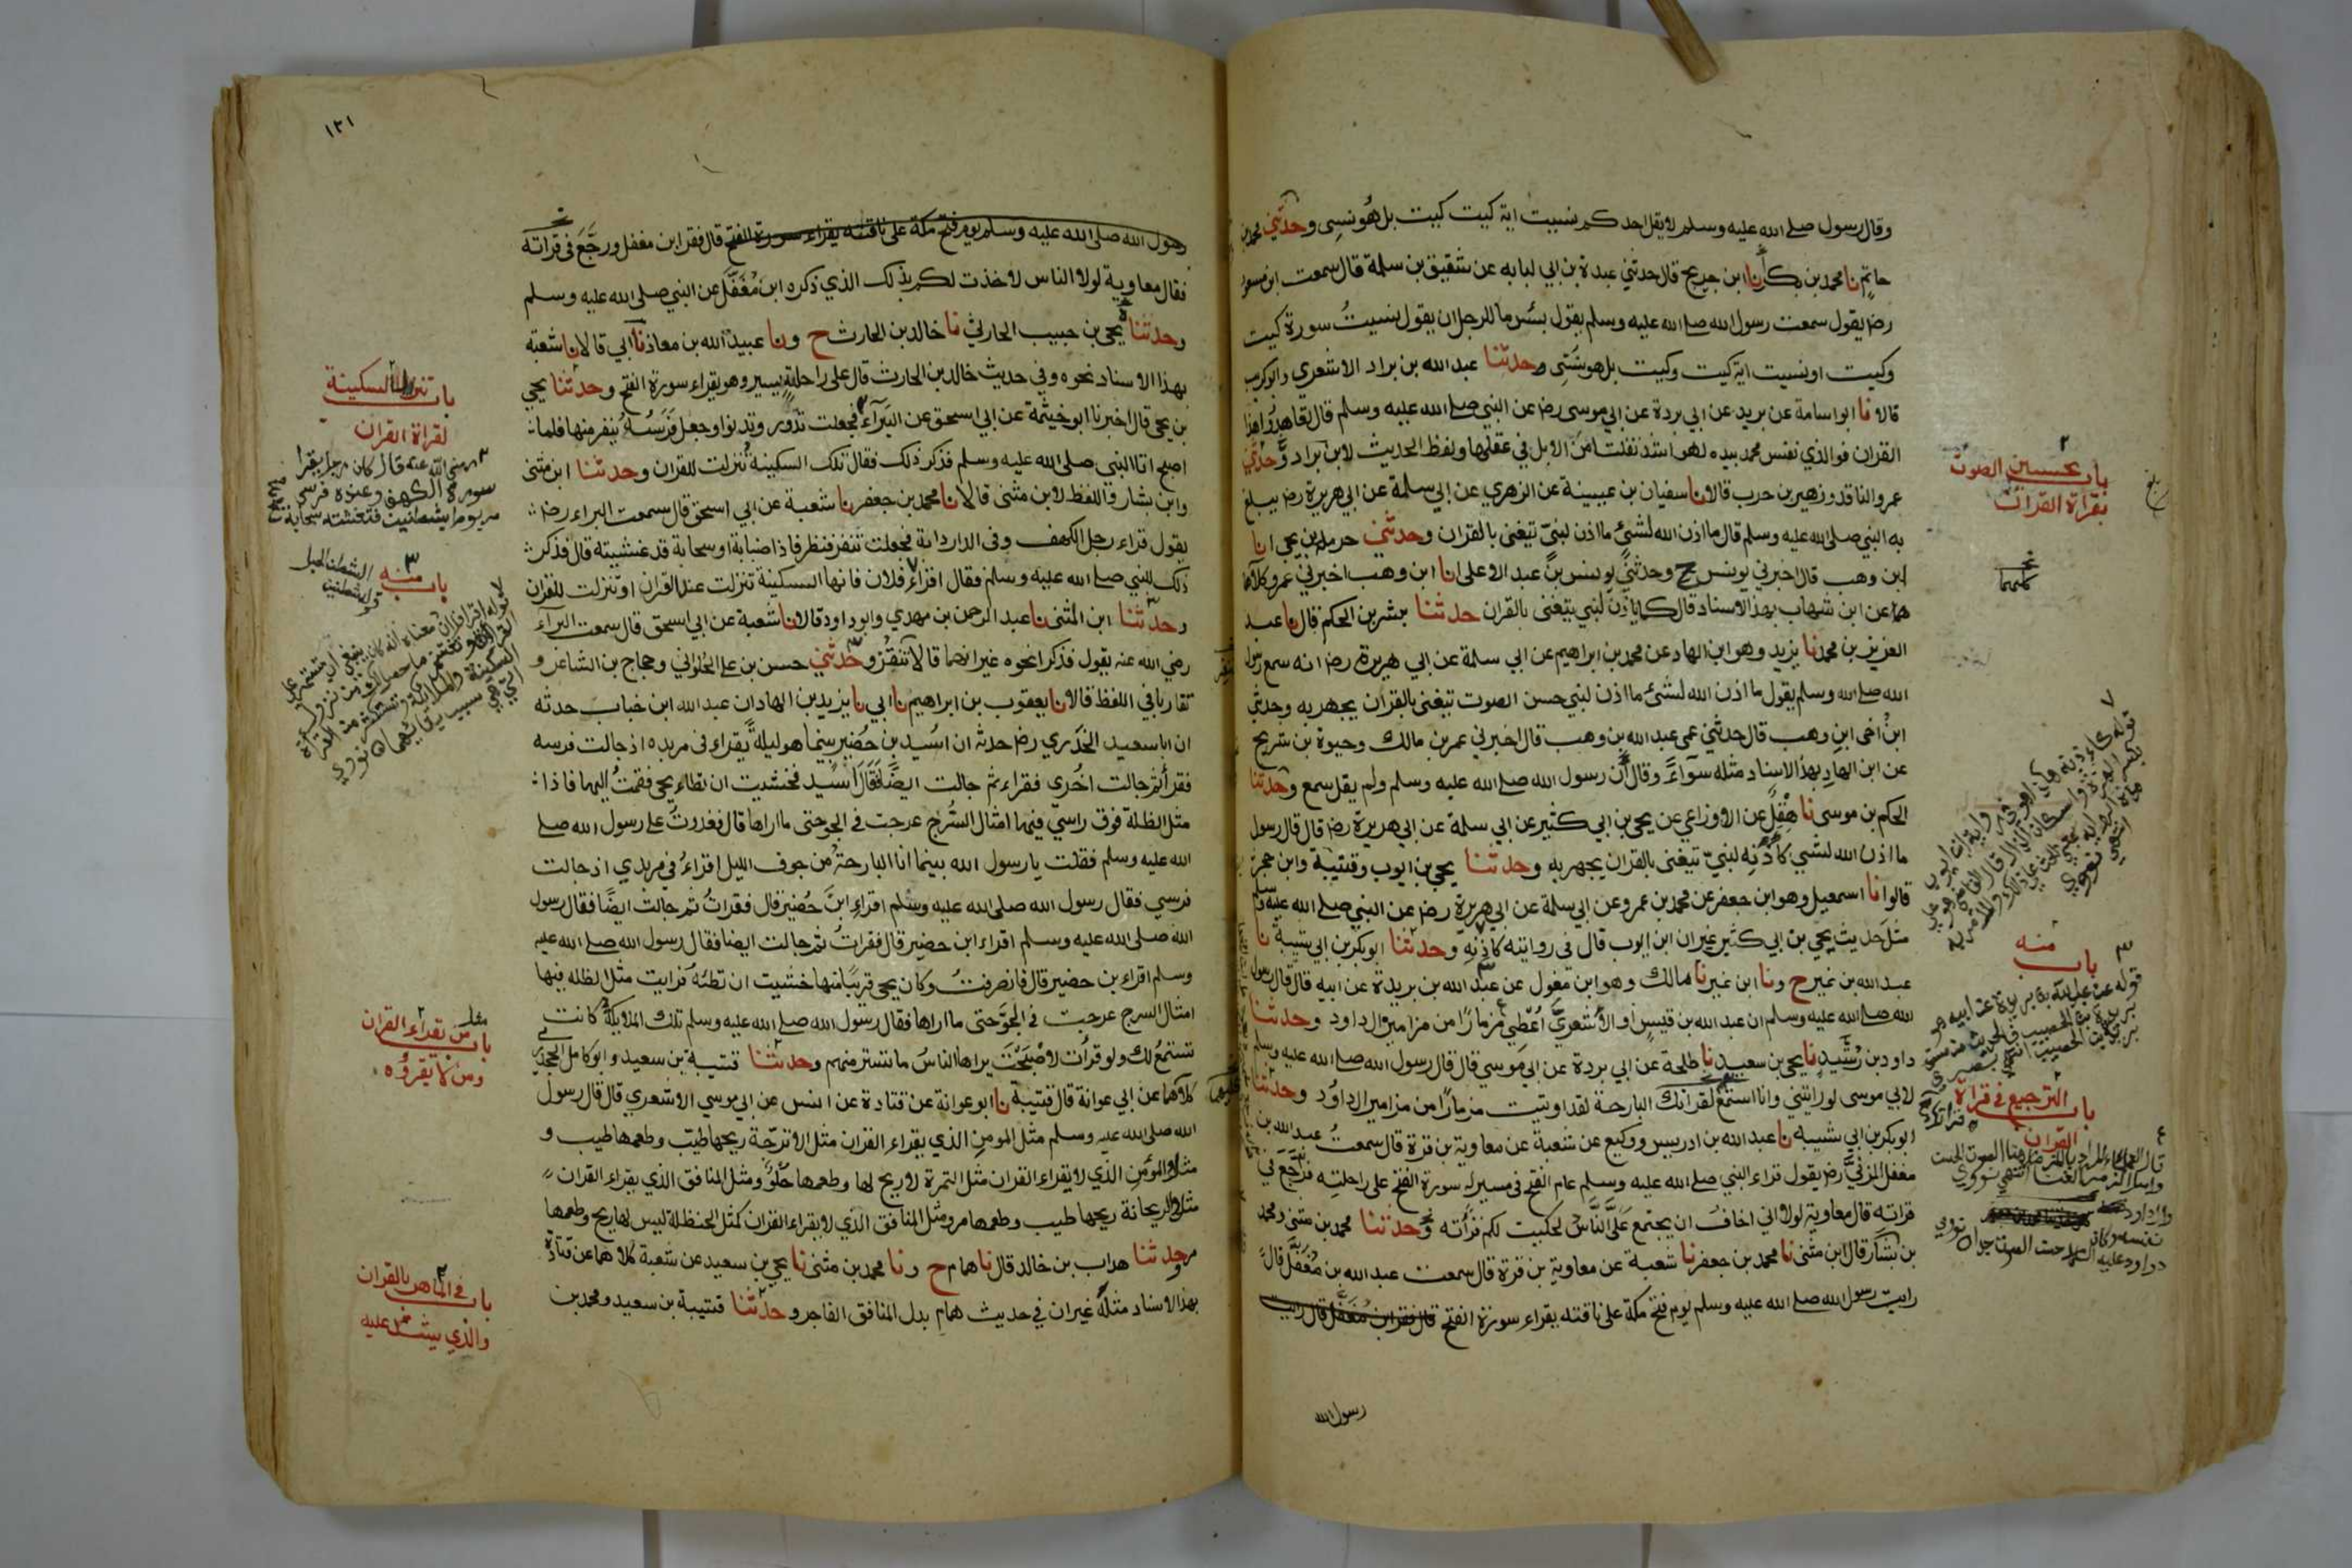 وقال رسول صلى الله عليه وسلم لا يقل احدكم نسيت اية كيت كيت بل هو نسي وحدثني محمد بن
حاتم نا محمد بن بكر انا ابن جريج قال حدثني عبدة بن ابي لبابه عن شقيق بن سلمة قال سمعت ابن مسعود
رضـ يقول سمعت رسول الله صلى الله عليه وسلم يقول بئس ما للرجل ان يقول نسيتُ سورة كيت
وكيت او نسيت اية كيت وكيت بل هو نسي وحدثنا عبد الله بن براد الاشعري وابو كريب
قالا نا ابو اسامة عن بريد عن ابي بردة عن ابي موسى رضـ عن النبي صلى الله عليه وسلم قال تعاهدوا هذا
القران فو الذي نفس محمد بيده لهو اشد تفلتا من الابل في عقلها ولفظ الحديث لابن براد وحدثني
عمرو الناقد وزهير بن حرب قالا نا سفيان بن عيينة عن الزهري عن ابي سلمة عن ابي هريرة رضـ يبلغ
به النبي صلى الله عليه وسلم قال ما اذن الله لشئ ما اذن لنبيّ تيغنى بالقران وحدثني حرملة بن يحيى انا
ابن وهب قال اخبرني يونس ح وحدثني يونس بن عبد الاعلى انا ابن وهب اخبرني عمرو كلاهما
هما عن ابن شهاب بهذا الاسناد قال كما ياذن لنبي يتغنى بالقران حدثنا بشر بن الحكم قال نا عبد
العزيز بن محمد نا يزيد وهو ابن الهاد عن محمد بن ابراهيم عن ابي سلمة عن ابي هريرة رضـ انه سمع رسول
الله صلى الله وسلم يقول ما اذن الله لشئ ما اذن لنبي حسن الصوت تيغنى بالقران يجهر به وحدثني
ابنُ اخى ابنِ وهب قال حدثني عمى عبد الله بن وهب قال اخبرني عمر بن مالك وحيوة بن شريح
عن ابن الهادِ بهذا الاسناد مثله سوآءً وقال ان رسول الله صلى الله عليه وسلم ولم يقل سمع وحدثنا
الحكم بن موسى نا هِقْل عن الاوزاعي عن يحيى بن ابي كثير عن ابي سلمة عن ابي هريرة رضـ قال قال رسول
ما اذن الله لشيى كأَذَنِه لنبيّ تيغنى بالقران يجهر به وحدثنا يحيى بن ايوب وقتيبة وابن حجر
قالوا نا اسمعيل وهو ابن جعفر عن محمد بن عمرو عن ابي سلمة عن ابي هريرة رضـ عن النبي صلى الله عليه وسلم
مثلَ حديث يحيى بن ابي كثير غير ان ابن ايوب قال في روايته كاذنه وحدثنا ابو بكر بن ابي شيبة نا
عبد الله بن نمير ح ونا ابن نمير نا مالك وهو ابن مغول عن عبد الله بن بريدة عن ابيه قال قال رسول
لله صلى الله عليه وسلم ان عبد الله بن قيسٍ او الاشعريَّ اُعْطِيَ مزمارًا من مزامير ال داود وحدثنا
داود بن رُشَيدٍ نا يحيى بن سعيد نا طلحة عن ابي بردة عن ابي موسى قال قال رسول الله صلى الله عليه وسلم
لابي موسى لو رايتني وانا استمع لقراتك البارحة لقد اوتيت مزمارًا من مزامير ال داوُد وحدثنا
ابو بكر بن ابي شيبه نا عبد الله بن ادريس ووكيع عن شعبة عن معاوية بن قرة قال سمعتُ عبد الله بن
مغفل المزنيَّ رضـ يقول قراء النبي صلى الله عليه وسلم عام الفتح في مسير له سورة الفتح على راحلته فرَجَّعَ في
قراته قال معاوية لولا اني اخاف ان يجتمع عَلَيَّ النَّاسُ لحكيت لكم قرأته وحدثنا محمد بن مثنى ومحمد
بن بشار قال ابن مثنى نا محمد بن جعفر نا شعبة عن معاوية بن قرة قال سمعت عبد الله بن مُغَفَّل قال
رايت رسول الله صلى الله عليه وسلم يوم فتح مكة على ناقته يقراء سورة الفتح قال فقرا ابن مُغَفَّل قال رايت
رسول الله
باب تحسين الصوت
بقراة القران
باب منه
باب الترجيع في قراة
القران
١٢١
رسول الله صلى الله عليه وسلم يوم فتح مكة على ناقته يقراء سورة الفتح قال فقرا ابن مغفل ورجَّعَ فى قراته
فقال معاوية لولا الناس لاخذت لكم بذلك الذي ذكره ابن مُغَفَّل عن النبي صلى الله عليه وسلم
وحدثنا يحيى بن حبيب الحارثي نا خالد بن الحارث ح ونا عبيد الله بن معاذ نا ابي قالا نا شعبة
بهذا الاسناد نحوه وفي حديث خالد بن الحارث قال على راحلةٍ يسير وهو يقراء سورة الفتح وحدثنا يحيى
بن يحيى قال اخبرنا ابو خيثمة عن ابي اسحق عن البرآء فجعلت تدور وتدنوا وجعل فرسُه ينفر منها فلما
اصبح اتا النبي صلى الله عليه وسلم فذكر ذلك فقال تلك السكينةُ نُنزلت للقران وحدثنا ابن مثنى
وابن بشار واللفظ لابن مثنى قالا نا محمد بن جعفر نا شعبة عن ابي اسحق قال سمعت البراء رضـ
يقول قراء رجل الكهف وفي الدار دابة فجعلت تنفر فنظر فاذا ضبابة او سحابة قد غشيته قال فذكر
ذلك للنبي صلى الله عليه وسلم فقال اقراء فلان فانها السكينة تنزلت عند القران او تنزلت للقران
وحدثنا ابن المثنى نا عبد الرحمن بن مهدي وابو داود قالا نا شعبة عن ابي اسحق قال سمعت البرآء
رضي الله عنه يقول فذكرا نحوه غير انهما قالا تَنْقُزُ وحدثني حسن بن علي الحُلْوَاني وحجاج بن الشاعر و
تقاربا في اللفظ قالا نا يعقوب بن ابراهيم نا ابي نا يزيد بن الهاد ان عبد الله ابن خباب حدثه
ان ابا سعيد الخُدري رضـ حدثه ان اُسَيد بن حُضَير بينما هو ليلةً يقراء في مربده اذ جالت فرسه
فقرأ ثم جالت اخرى فقراء ثم جالت ايضًا فقَالَ اُسَيد فخشيت ان تطاء يحيى فقمتُ اليها فاذا
مثل الظلة فوق راسي فيها امثال السُّرج عرجت في الجو حتى ما اراها قال فغدوتُ على رسول الله صلى
الله عليه وسلم فقلت يا رسول الله بينما انا البارحة من جوف الليل اقراءُ في مربدي اذ جالت
فرسي فقال رسول الله صلى الله عليه وسلم اقراء ابنَ حُضَير قال فقراتُ ثم جالت ايضًا فقال رسول
الله صلى الله عليه وسلم اقراء ابن حضير قال فقراتُ ثم جالت ايضا فقال رسول الله صلى الله عليه
وسلم اقراء بن حضير قال فانصرفتُ وكان يحيى قريبًا منها خشيت ان تطئه فرايت مثل الظله فيها
امثال السرج عرجت في الجوّ حتى ما اراها فقال رسول الله صلى الله عليه وسلم تلك الملايكةُ كانت
تستمعُ لك ولو قرأت لاصْبَحْتَ يراها الناسُ ما تستتر منهم وحدثنا قتيبة بن سعيد وابو كامل الجحدري
كلاهما عن ابي عوانة قال قتيبة نا ابو عوانة عن قتادة عن انس عن ابي موسى الاشعري قال قال رسول
الله صلى الله عليه وسلم مثل المومن الذي يقراء القران مثل الاترجّة ريحها طيّب وطعمها طيب و
مثل المؤمن الذي لا يقراء القران مثل التمرة لا ريح لها وطعمها حُلْوٌ ومثل المنافق الذي يقراء القران
مثل الريحانة ريحها طيب وطعمها مر ومثل المنافق الذي لا يقراء القران كمثل الحنظلة ليس لها ريح وطعمها
مر وحدثنا هداب بن خالد قال نا همام ح ونا محمد بن مثنى نا يحيى بن سعيد عن شعبة كلاهما عن قتادة
بهذا الاسناد مثلَه غير ان في حديث همامٍ بدل المنافق الفاجر وحدثنا قتيبة بن سعيد ومحمد بن
باب تنزل السكينة
لقراة القران
رضى الله عنه قال كان رجل يقرا
سورة الكهف وعنده فرس
مربوط بشطنين فتغشته سحابة
باب منه
باب مثل من يقراء القران
ومن لا يقرؤه
باب في الماهر بالقران
والذي يشتد عليه